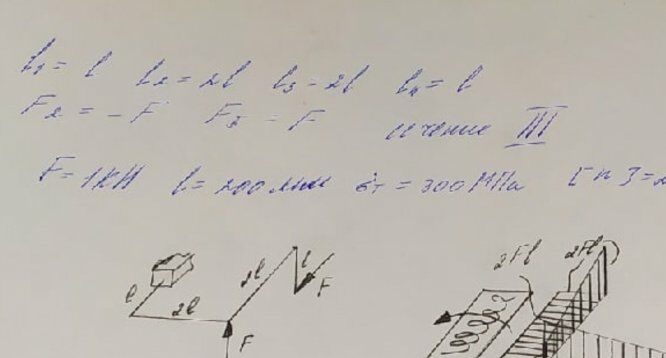 l₁ = l l₂ = 2l l₃ - 2l l₄ = l
F₂ = -F F₅ = F сечение III
F = 1кН l = 200мм σт = 300МПа [n]=2
2l l F
l 2l
F
2Fl 2Fl